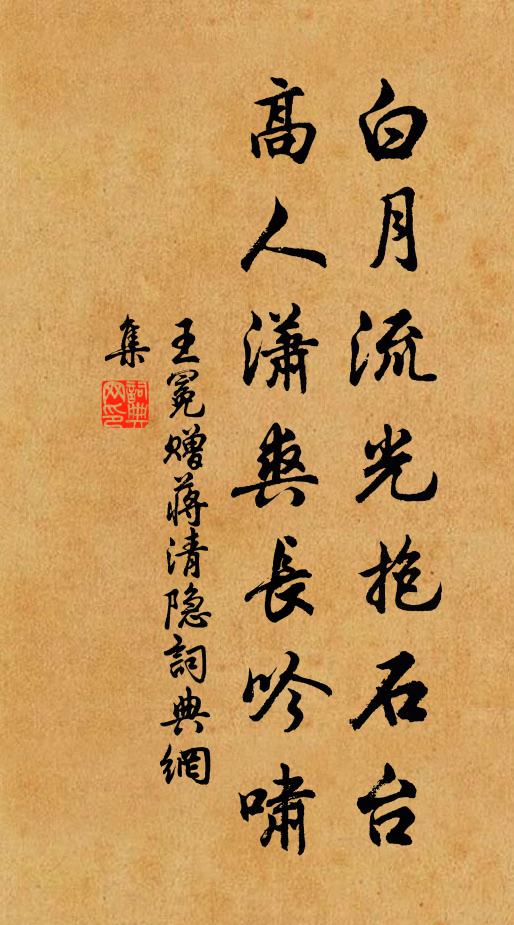 白月流光抱石台
高人潇爽長吟嘯
王冕赠蒋清隐詞典網
集
詞典网印